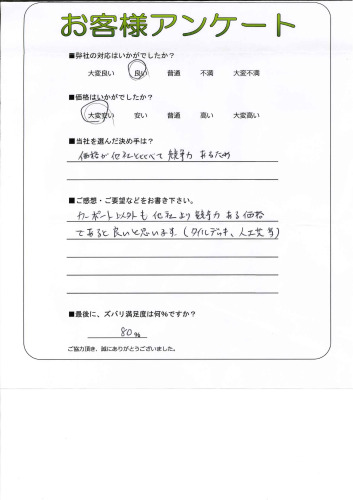 お客様アンケート
■弊社の対応はいかがでしたか？
大変良い 良い 普通 不満 大変不満
■価格はいかがでしたか？
大変安い 安い 普通 高い 大変高い
■当社を選んだ決め手は？
価格が他社とくらべて競争力あるため
■ご感想・ご要望などをお書き下さい。
カーポート以外も他社より競争力ある価格
であると良いと思います。(タイルデッキ、人工芝等)
■最後に、ズバリ満足度は何%ですか？
80%
ご協力頂き、誠にありがとうございました。